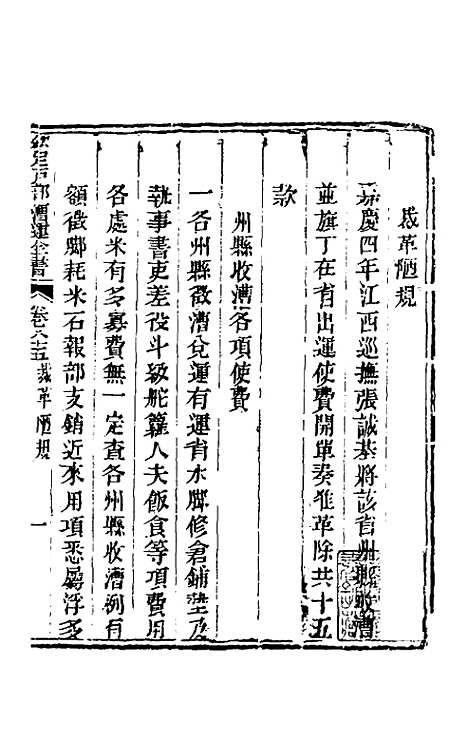 裁革陋規
嘉慶四年江西巡撫張誠基將該省州縣收漕
並旗丁在省出運使費開單奏准革除共十五
款
州縣收漕各項使費
一各州縣徵漕兌運有運省水脚修倉鋪墊及
執事書吏差役斗級舵籮人夫飯食等項費用
各處米有多寡費無一定查各州縣收漕例有
額徵脚耗米石報部支銷近來用項悉屬浮多
欽定戶部漕運全書
卷八十五 裁革陋規
一